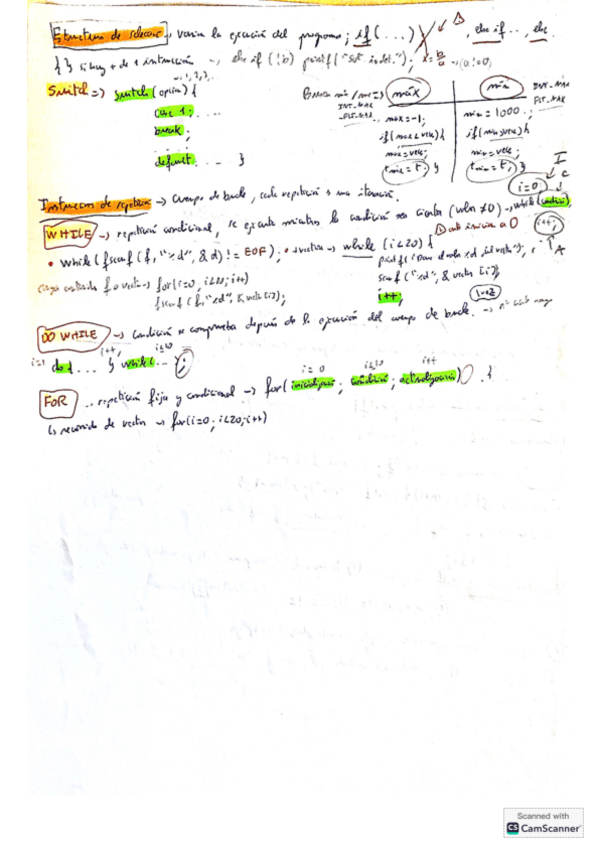 Estructuras de selección → varía la ejecución del programa; if (...) , else if .., else
{ } si hay + de 1 instrucción → else if (!b) printf("Sol. indet."); x = b/a → (a != 0)
Switch => switch (option) {
→ 1, 2, 3..
case 1: ...
break;
default: ... }
Buscar min/max => máx
INT_MAX
-FLT_MAX
max = -1;
if (max < vec) {
max = vec;
tmax = t; }
min
INT_MAX
FLT_MAX
min = 1000;
if (min > vec) {
min = vec;
tmin = t; }
Instrucciones de repetición → cuerpo de bucle, cada repetición es una iteración.
i = 0;
I
C
WHILE → repetición condicional, se ejecuta mientras la condición sea cierta (valor ≠ 0) → while (condición)
i++;
A
• while (fscanf (f, "%d", &d) != EOF); • vector → while (i<20) {
scanf ("%d", & vector [i]);
i++;
for (i=0; i<20; i++)
fscanf (f, "%d", & vector [i]);
1 vez
DO WHILE → condición se comprueba después de la ejecución del cuerpo de bucle.
i++; i≤10
i=1 do { ... } while (... );
i = 0 i≤10 i++
FOR .. repetición fija y condicional → for (inicialización; condición; actualización) .. {
↳ recorrido de vector → for (i=0; i<20; i++)
Scanned with
CS CamScanner